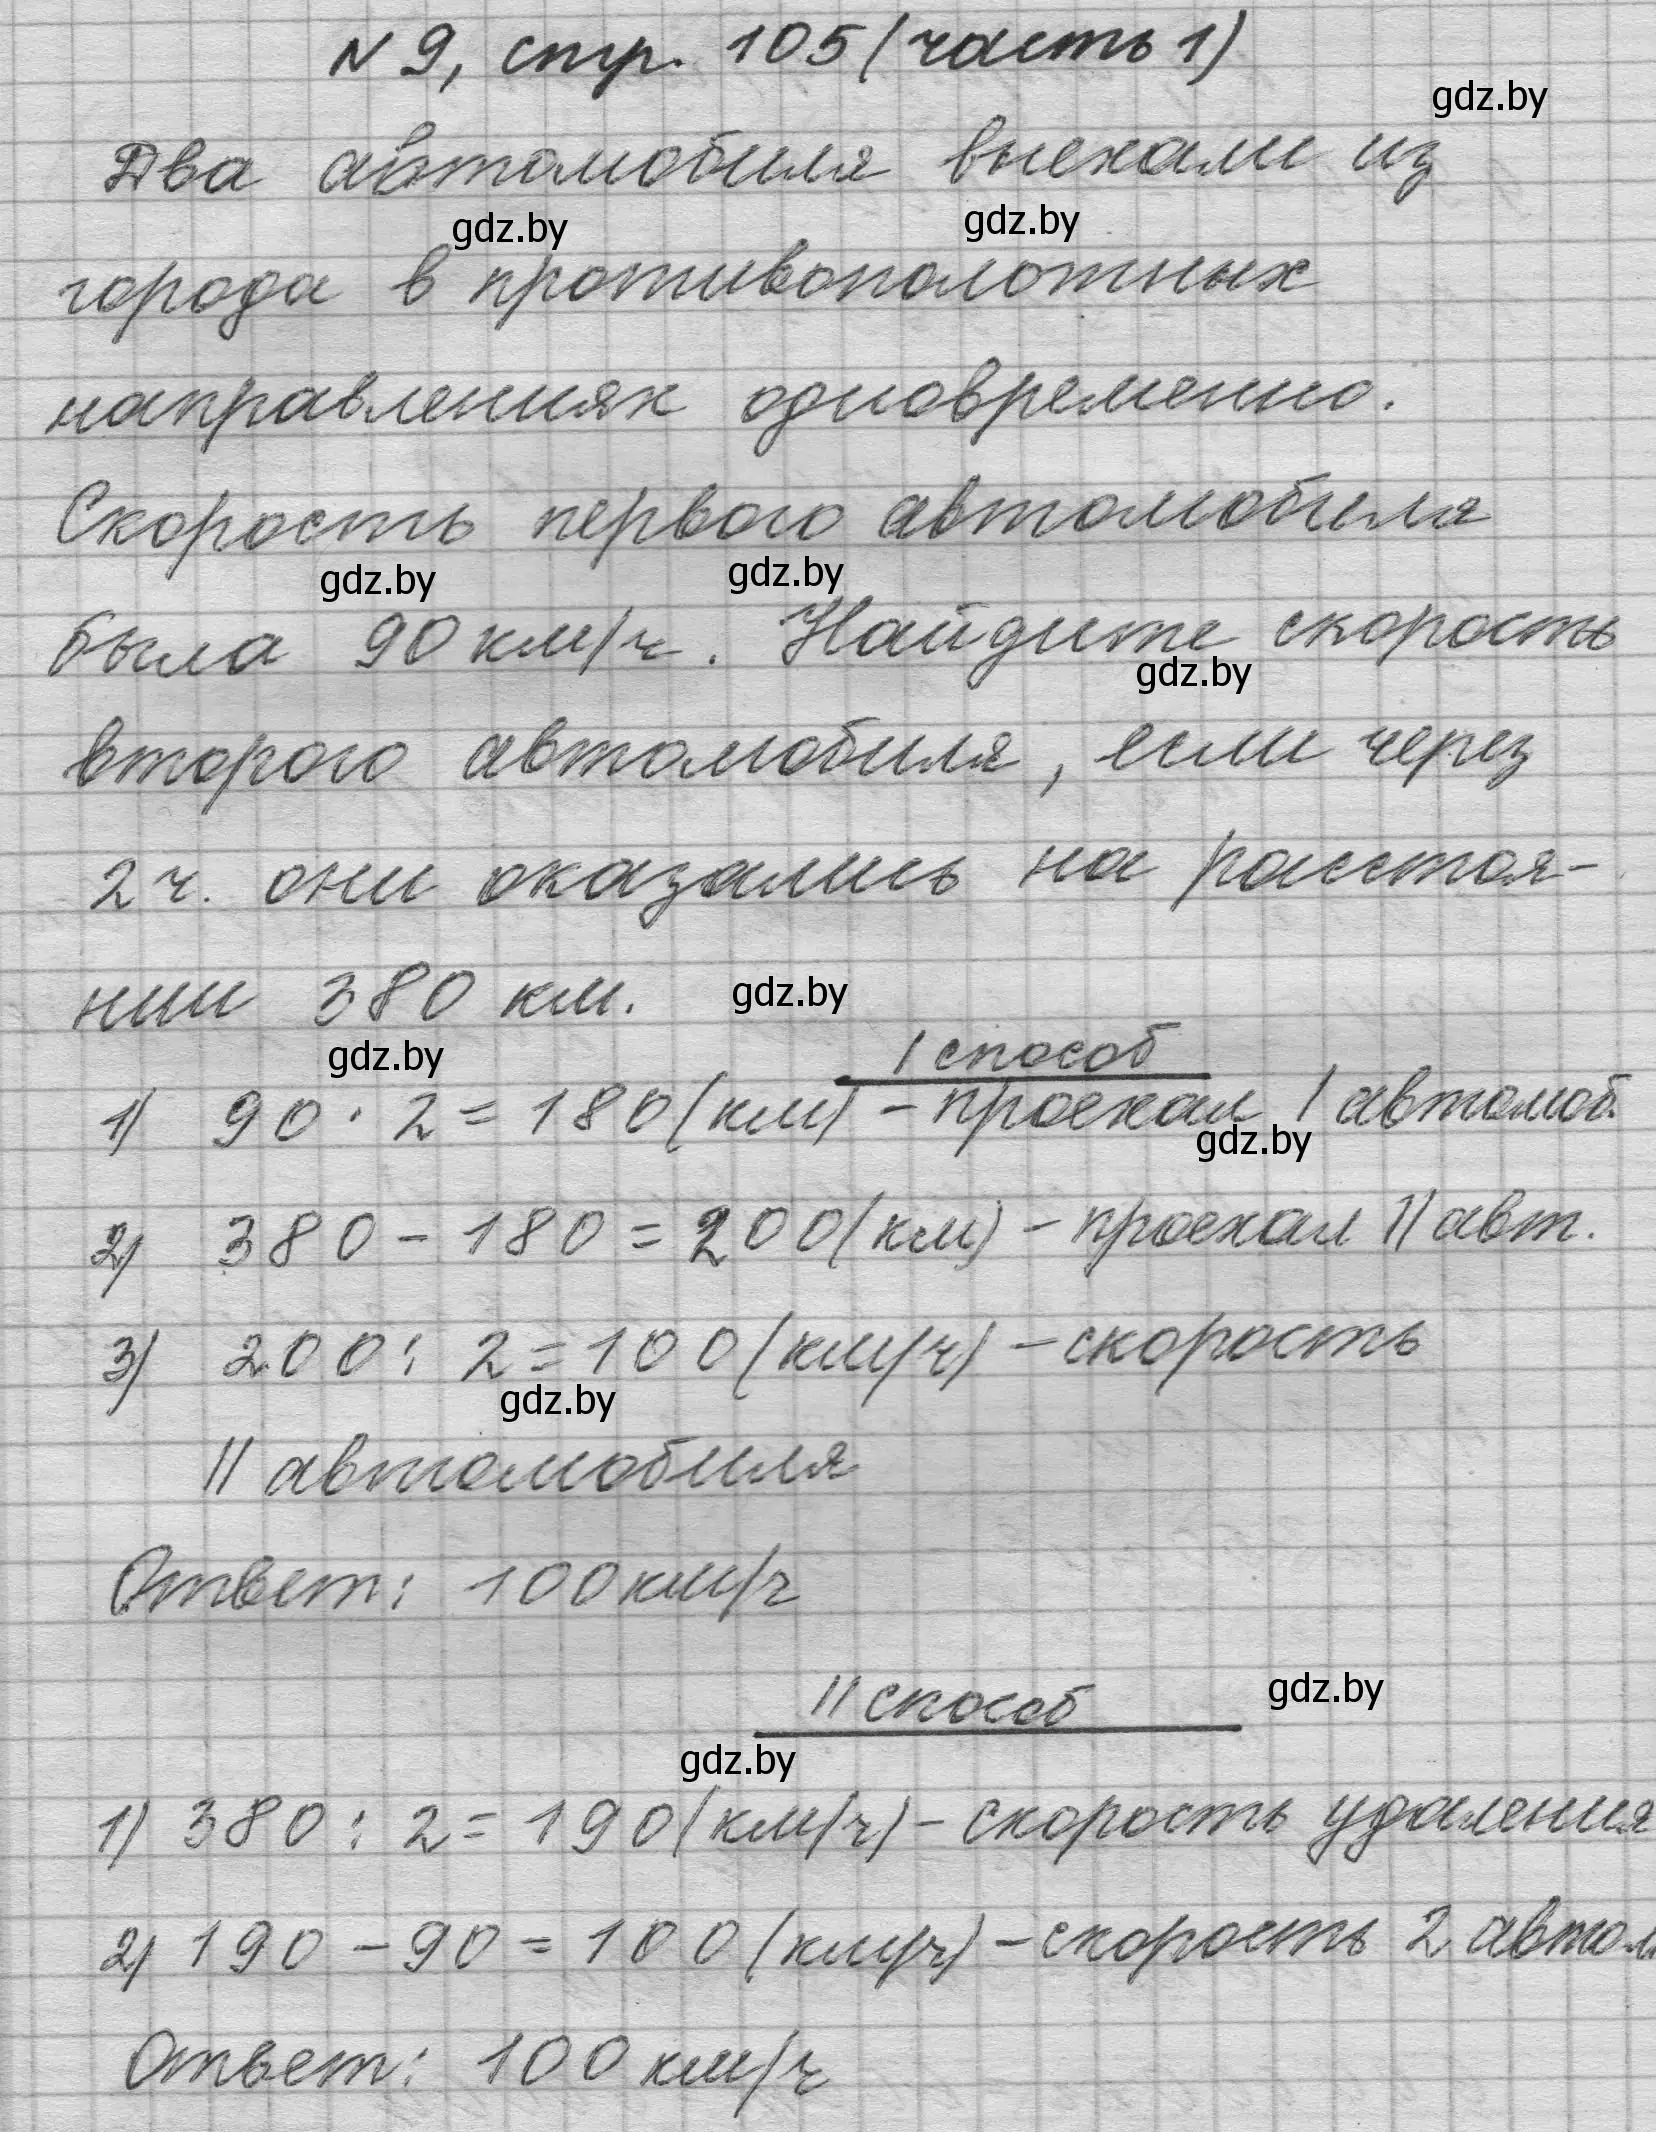 N 9, стр. 105 (часть 1)
gdz.by
Два автомобиля выехали из
gdz.by gdz.by
города в противополотных
направлениях одновременно.
Скорость первого автомобиля
gdz.by gdz.by
была 90 км/ч. Найдите скорость
gdz.by
второго автомобиля, если через
2 ч. они оказались на расстоя-
нии 380 км.
gdz.by
gdz.by
I способ
1) 90 · 2 = 180 (км) - проехал I автомоб.
gdz.by
2) 380 - 180 = 200 (км) - проехал II авт.
3) 200 : 2 = 100 (км/ч) - скорость
gdz.by
II автомобиля
Ответ: 100 км/ч
II способ
gdz.by
gdz.by
1) 380 : 2 = 190 (км/ч) - скорость удаления
2) 190 - 90 = 100 (км/ч) - скорость 2 автом
Ответ: 100 км/ч